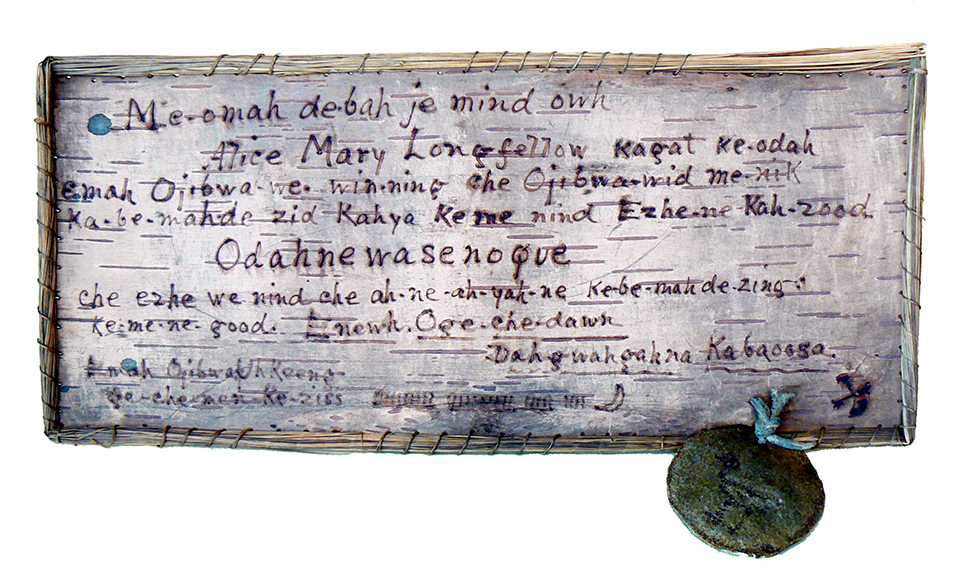 Me-omah de-bah je mind owh
Alice Mary Longfellow kagat ke-odah
emah Ojibwa-we-win-ning che Ojibwa-wid me-nik
ka-be-mahde zid Kahya keme nind Ezhe-ne Kah-zood
Odahnewasenoqve
che ezhe we nind che ah-ne-ah-yah-ne ke-be-mahde-zing
ke-me-ne-good. Enewh. Oge-che-dawn
Dahgwahgahna Kabaoosa.
Emah Ojibwa
ge-che-men Ke-ziss